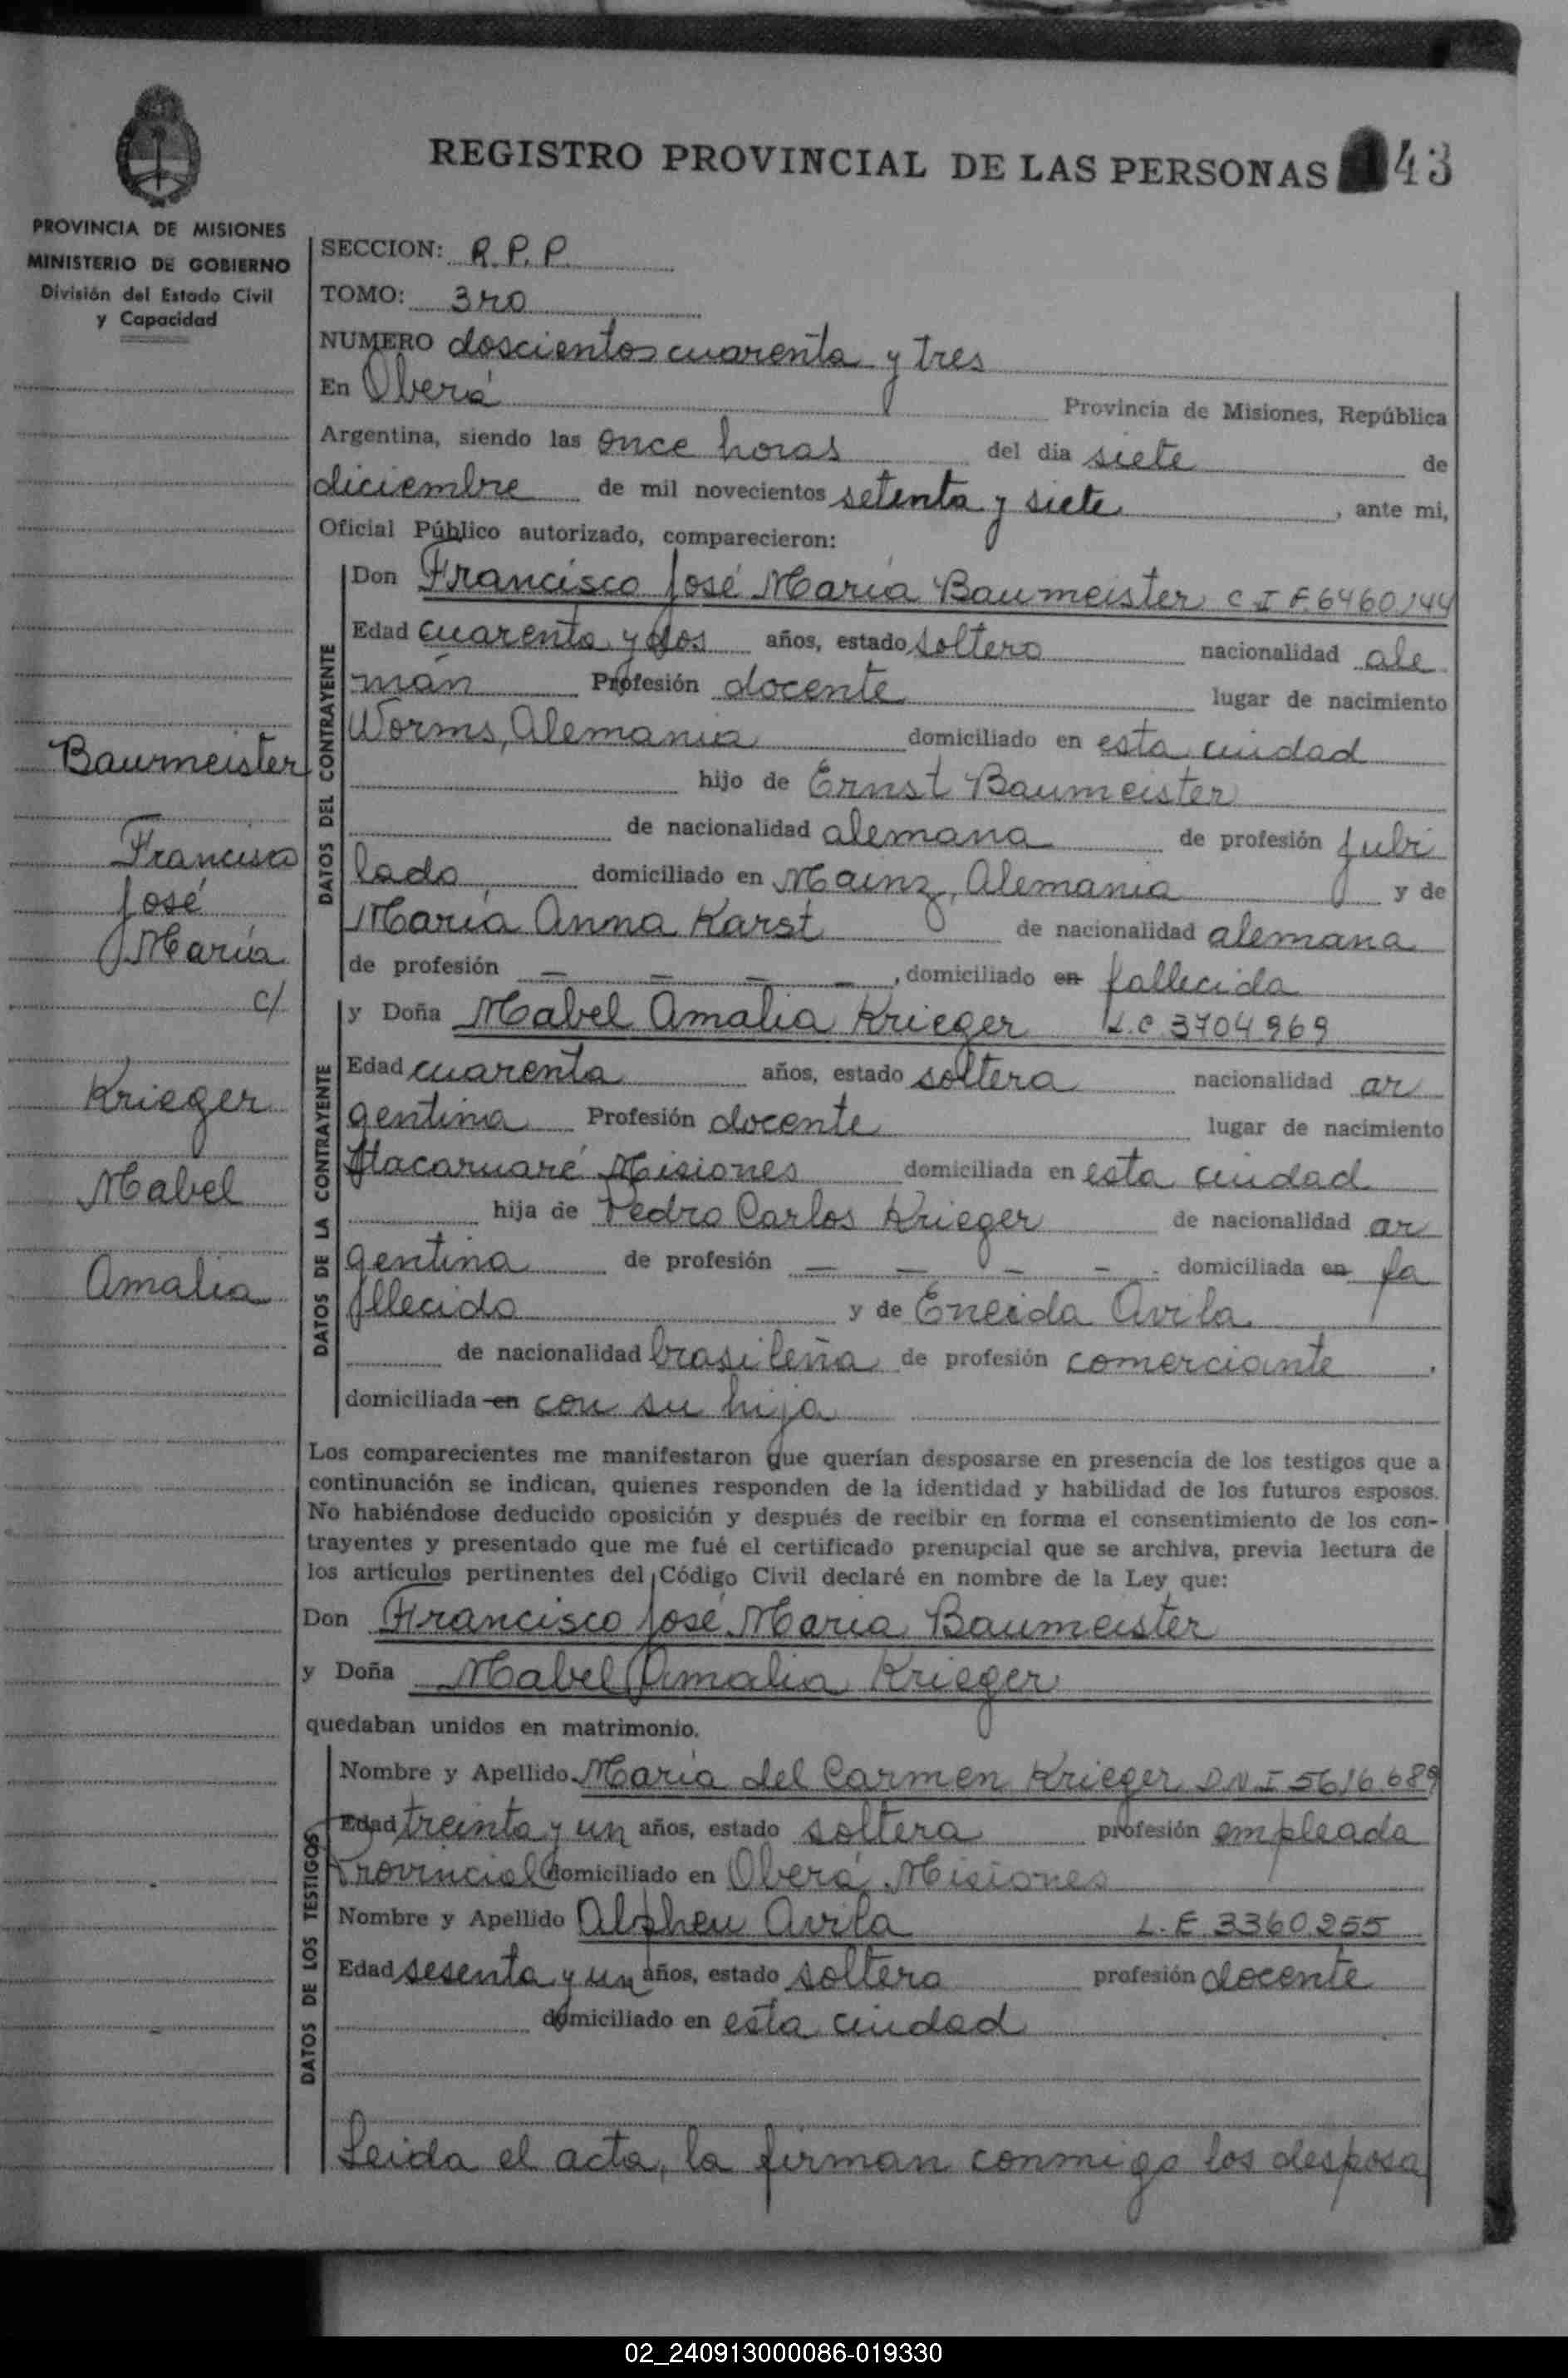 REGISTRO PROVINCIAL DE LAS PERSONAS 43
PROVINCIA DE MISIONES
MINISTERIO DE GOBIERNO
División del Estado Civil
y Capacidad
SECCION: R. P. P.
TOMO: 3ro
NUMERO doscientos cuarenta y tres
En Oberá Provincia de Misiones, República
Argentina, siendo las once horas del día siete de
diciembre de mil novecientos setenta y siete, ante mi,
Oficial Público autorizado, comparecieron:
DATOS DEL CONTRAYENTE
Don Francisco José María Baumeister C I F. 6460144
Edad cuarenta y dos años, estado soltero nacionalidad ale
mán Profesión docente lugar de nacimiento
Worms, Alemania domiciliado en esta ciudad
hijo de Ernst Baumeister
de nacionalidad alemana de profesión jubi
lado, domiciliado en Mainz, Alemania y de
María Anna Karst de nacionalidad alemana
de profesión — — — —, domiciliado en fallecida
Baumeister
Francisco
José
María
c/
Krieger
Mabel
Amalia
DATOS DE LA CONTRAYENTE
y Doña Mabel Amalia Krieger L.C 3704969
Edad cuarenta años, estado soltera nacionalidad ar
gentina Profesión docente lugar de nacimiento
Itacaruaré Misiones domiciliada en esta ciudad
hija de Pedro Carlos Krieger de nacionalidad ar
gentina de profesión — — — — domiciliada en fa
llecido y de Eneida Avila
de nacionalidad brasileña de profesión comerciante.
domiciliada en con su hija
Los comparecientes me manifestaron que querían desposarse en presencia de los testigos que a
continuación se indican, quienes responden de la identidad y habilidad de los futuros esposos.
No habiéndose deducido oposición y después de recibir en forma el consentimiento de los con-
trayentes y presentado que me fué el certificado prenupcial que se archiva, previa lectura de
los artículos pertinentes del Código Civil declaré en nombre de la Ley que:
Don Francisco José María Baumeister
y Doña Mabel Amalia Krieger
quedaban unidos en matrimonio.
DATOS DE LOS TESTIGOS
Nombre y Apellido María del Carmen Krieger D.N.I 5616.689
Edad treinta y un años, estado soltera profesión empleada
Provincial domiciliado en Oberá Misiones
Nombre y Apellido Alpheu Avila L.E. 3360.255
Edad sesenta y un años, estado soltero profesión docente
domiciliado en esta ciudad
Leida el acta, la firman conmigo los desposa
02_240913000086-019330